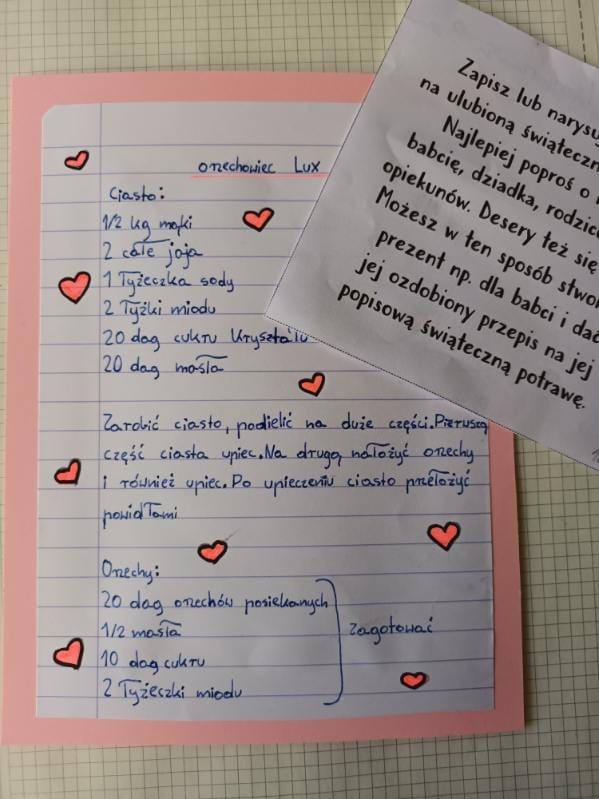 orzechowiec Lux
Ciasto:
1/2 kg mąki
2 całe jaja
1 łyżeczka sody
2 łyżki miodu
20 dag cukru
20 dag masła
Zarobić ciasto, podielić na duże części. Pierwszą
część ciasta upiec. Na drugą nałożyć orzechy
i również upiec. Po upieczeniu ciasto przełożyć
powidłami
Orzechy:
20 dag orzechów posiekanych
1/2 masła
10 dag cukru
2 łyżeczki miodu
zagotować
Zapisz lub
na ulubioną
Najlepiej poproś o
babcię, dziadka,
opiekunów. Desery też się
Możesz w ten sposób
prezent np. dla babci i dać
jej ozdobiony przepis na jej
popisową świąteczną potrawę.